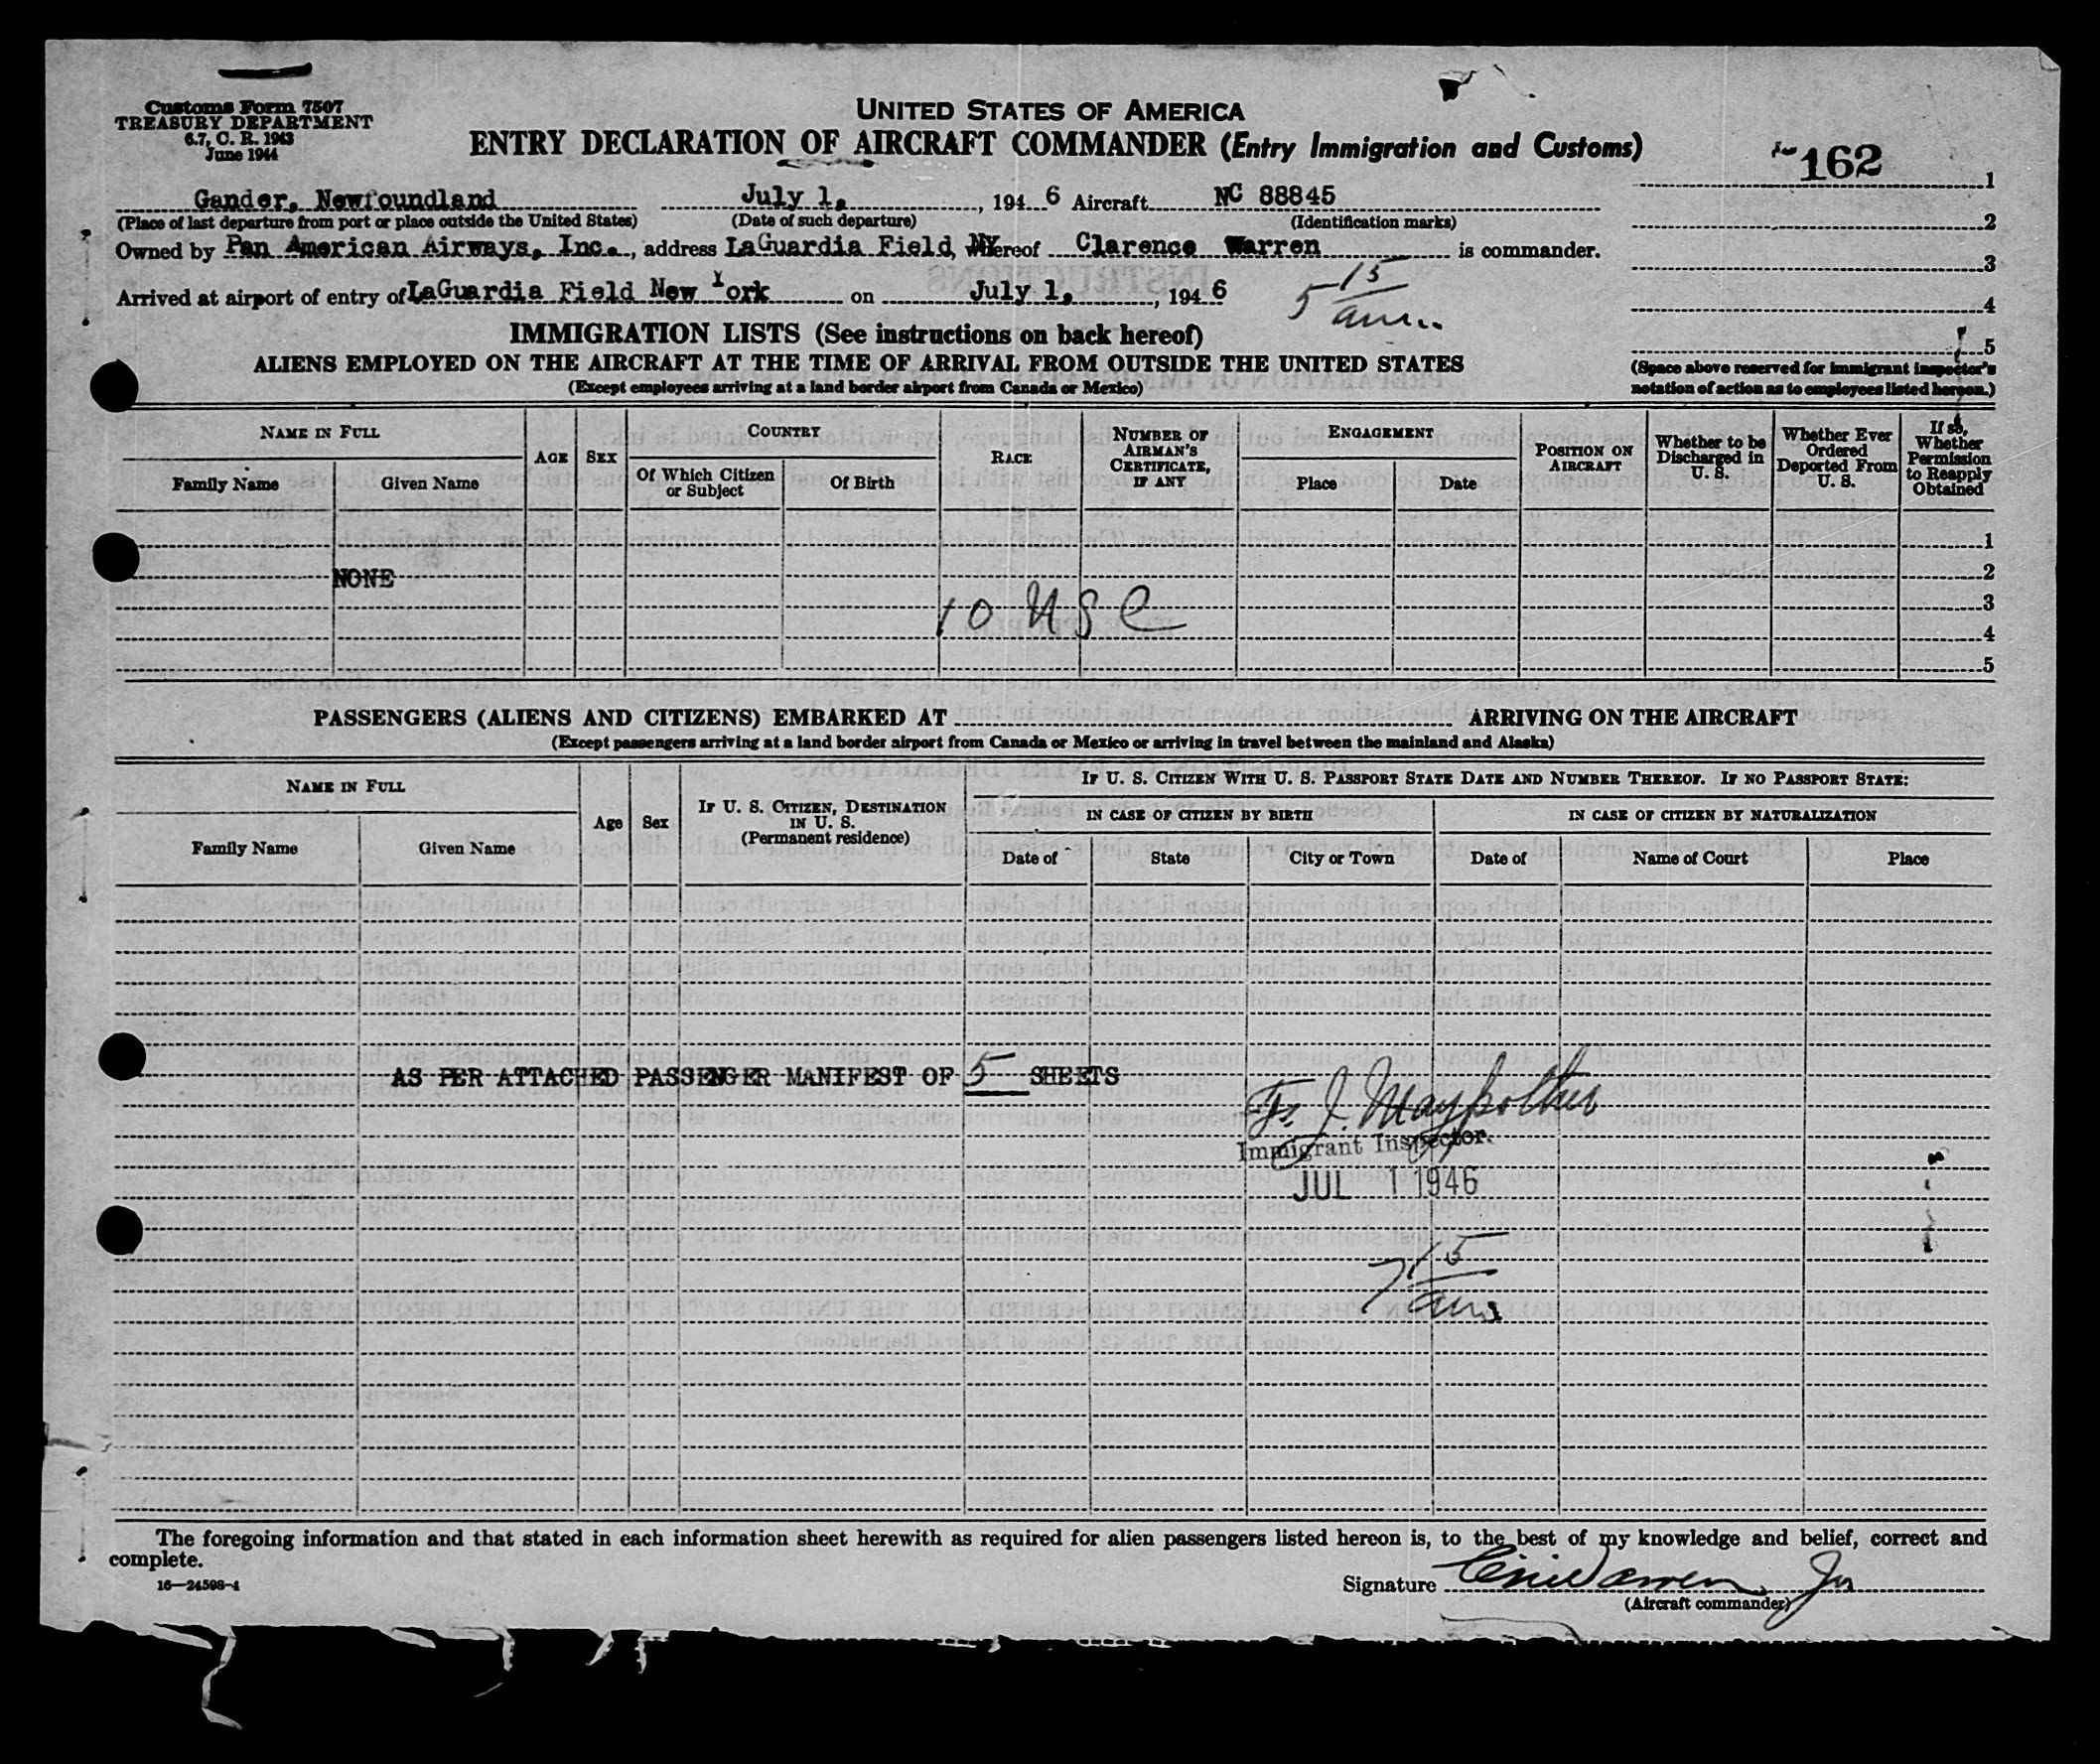 Customs Form 7507
TREASURY DEPARTMENT
6.7, C. R. 1943
June 1944
UNITED STATES OF AMERICA
ENTRY DECLARATION OF AIRCRAFT COMMANDER (Entry Immigration and Customs)
162
Gander, Newfoundland July 1, , 194 6 Aircraft NC 88845 1
(Place of last departure from port or place outside the United States) (Date of such departure) (Identification marks) 2
Owned by Pan American Airways, Inc. , address LaGuardia Field, NY whereof Clarence Warren is commander.
3
Arrived at airport of entry of LaGuardia Field New York on July 1, , 194 6 5 15 am 4
IMMIGRATION LISTS (See instructions on back hereof)
5
ALIENS EMPLOYED ON THE AIRCRAFT AT THE TIME OF ARRIVAL FROM OUTSIDE THE UNITED STATES
(Space above reserved for immigrant inspector's
notation of action as to employees listed hereon.)
(Except employees arriving at a land border airport from Canada or Mexico)
NAME IN FULL
Family Name Given Name
AGE SEX
COUNTRY
Of Which Citizen or Subject Of Birth
RACE
NUMBER OF AIRMAN'S CERTIFICATE, IF ANY
ENGAGEMENT
Place Date
POSITION ON AIRCRAFT
Whether to be Discharged in U. S.
Whether Ever Ordered Deported From U. S.
If so, Whether Permission to Reapply Obtained
1
NONE 2
10 USC 3
4
5
PASSENGERS (ALIENS AND CITIZENS) EMBARKED AT ARRIVING ON THE AIRCRAFT
(Except passengers arriving at a land border airport from Canada or Mexico or arriving in travel between the mainland and Alaska)
NAME IN FULL
Family Name Given Name
Age Sex
IF U. S. CITIZEN, DESTINATION IN U. S.
(Permanent residence)
IF U. S. CITIZEN WITH U. S. PASSPORT STATE DATE AND NUMBER THEREOF. IF NO PASSPORT STATE:
IN CASE OF CITIZEN BY BIRTH IN CASE OF CITIZEN BY NATURALIZATION
Date of State City or Town Date of Name of Court Place
AS PER ATTACHED PASSENGER MANIFEST OF 5 SHEETS
Immigrant Inspector.
JUL 1 1946
7 15 am
The foregoing information and that stated in each information sheet herewith as required for alien passengers listed hereon is, to the best of my knowledge and belief, correct and
complete.
16—24598-1
Signature Warren Jr
(Aircraft commander)